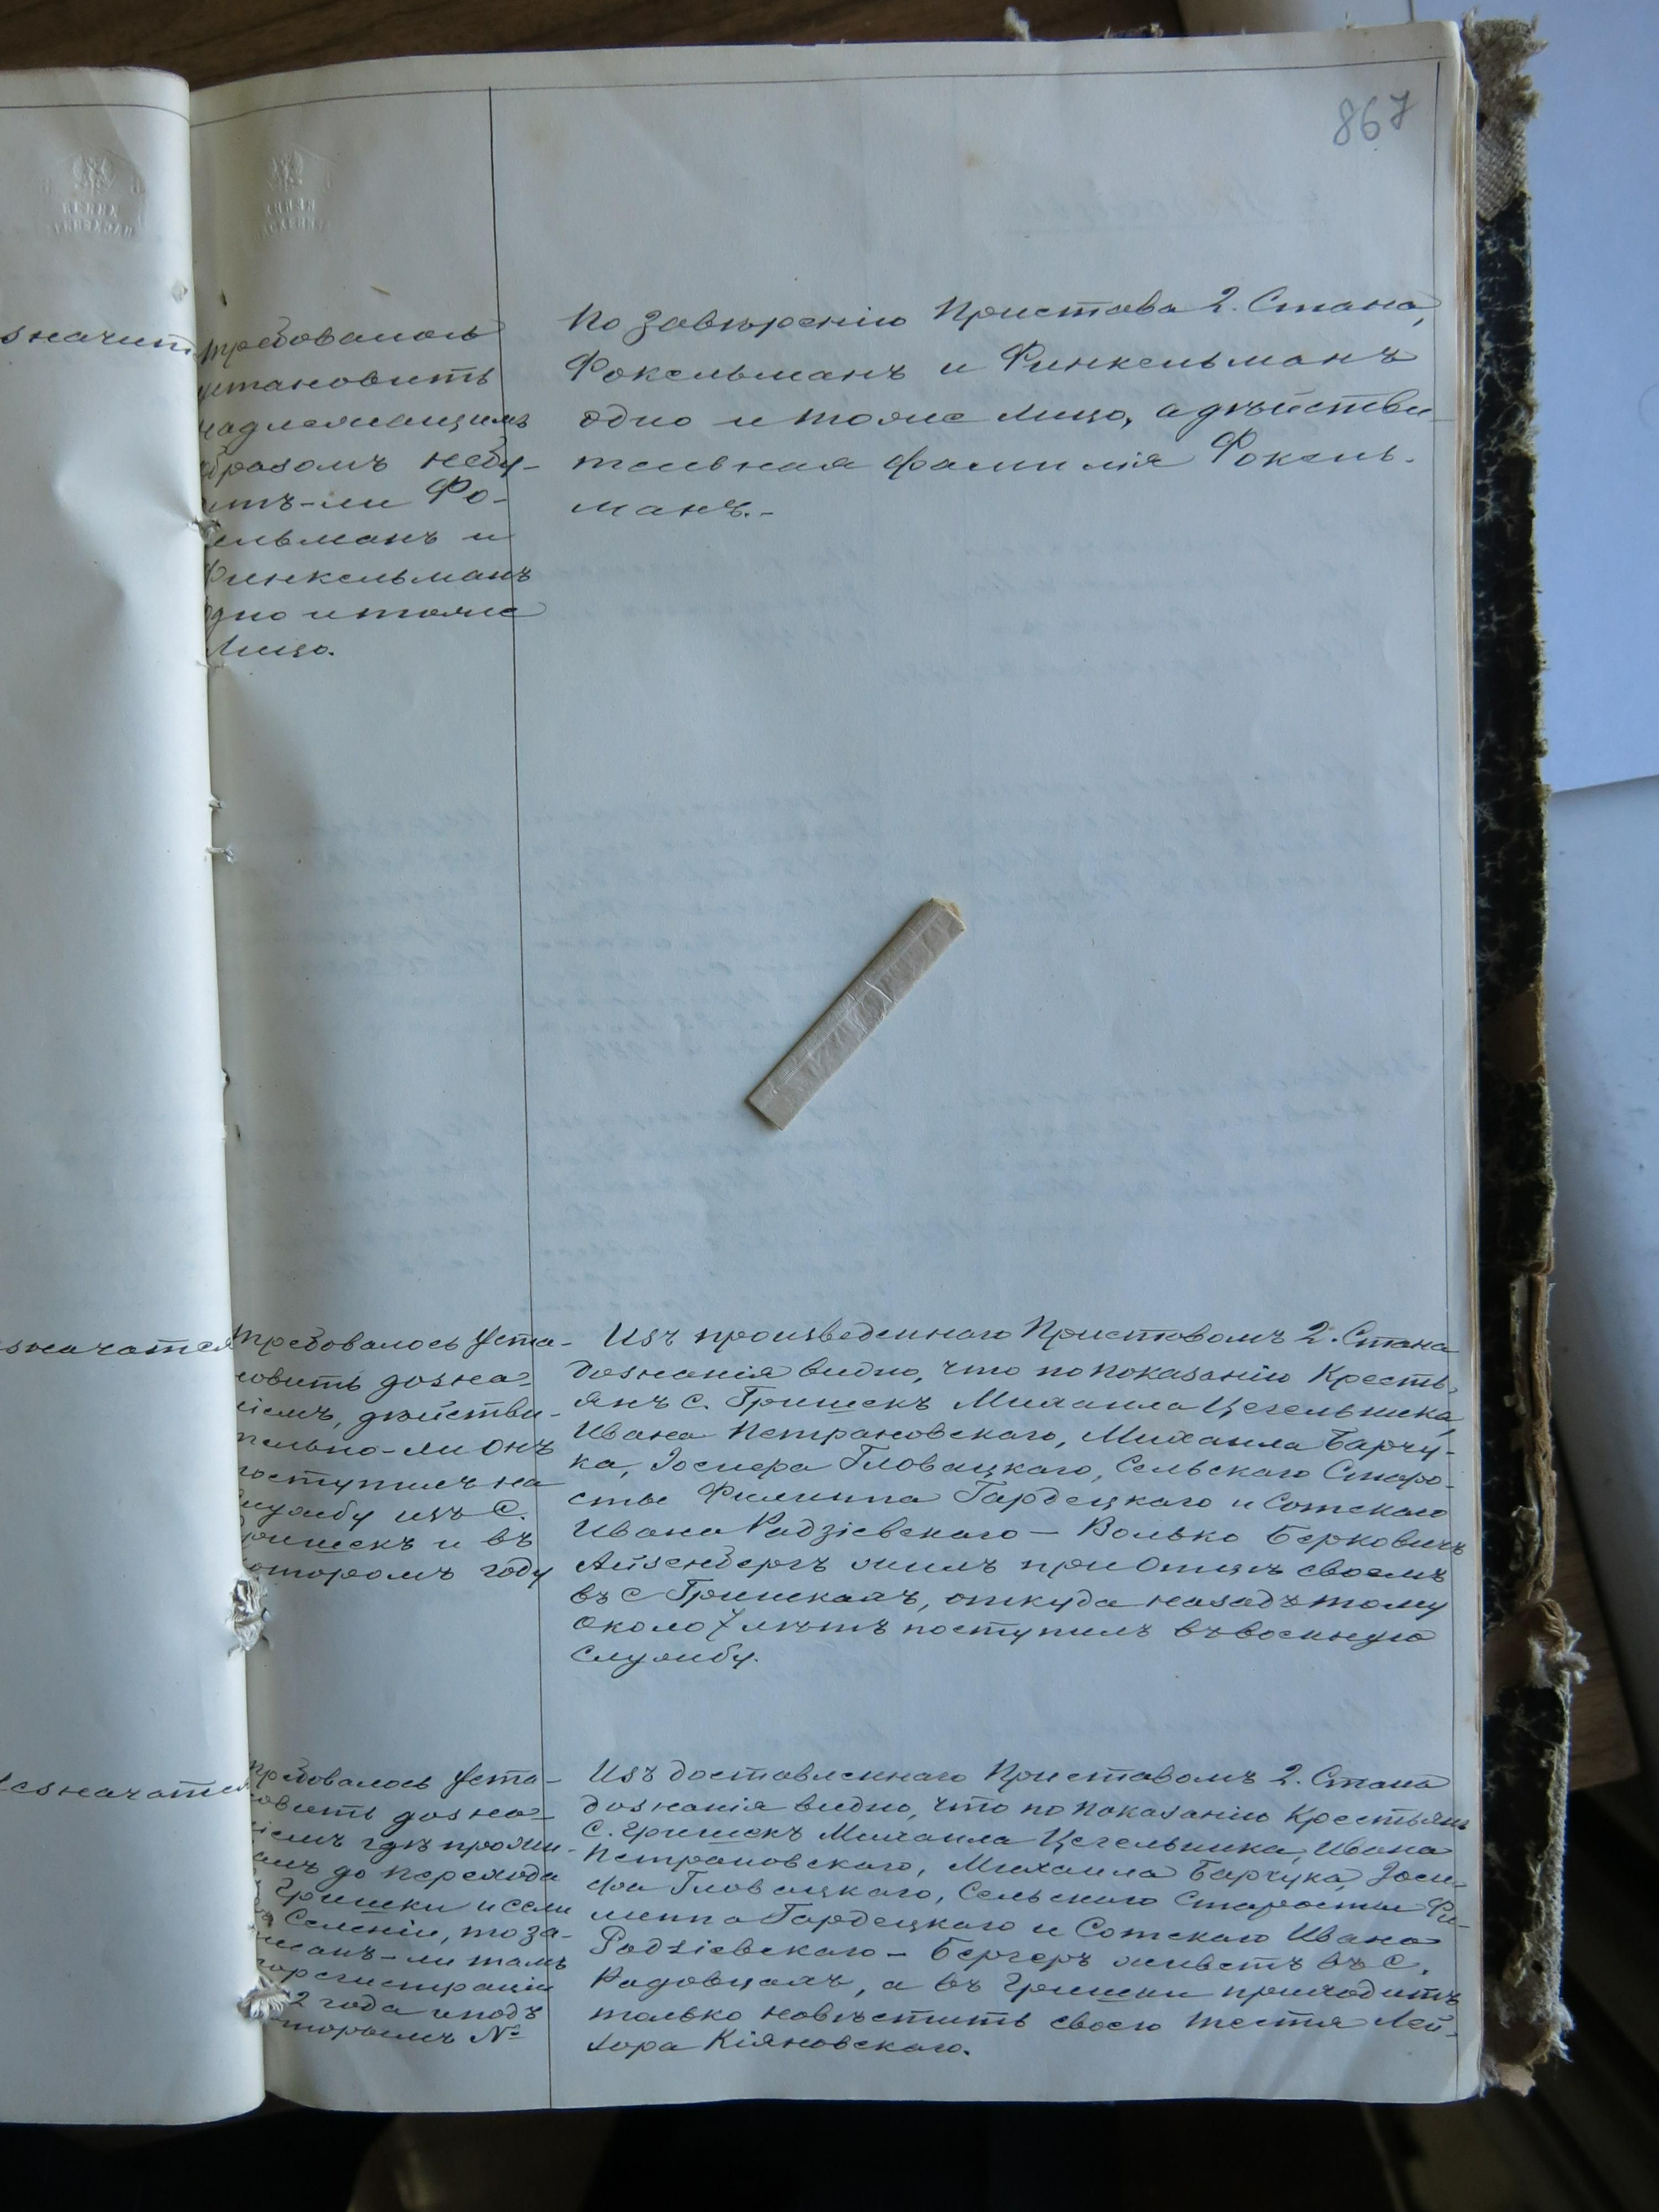 867
значит
Требовалось
установить
надлежащимъ
образомъ небу-
детъ-ли Фо-
кельманъ и
Финкельманъ
одно и тоже
лицо.
По завѣренію Пристава 2. Стана,
Фокельманъ и Финкельманъ
одно и тоже лицо, а дѣйстви-
тельная фамилія Фокель-
манъ.-
значатся
Требовалось уста-
новить дозна-
ніемъ, дѣйстви-
тельно-ли онъ
поступилъ на
службу изъ С.
Гришекъ и въ
которомъ году
Изъ произведеннаго Приставомъ 2. Стана
дознанія видно, что по показанію Кресть-
янъ с. Гришекъ Михаила Цегельника,
Ивана Петрановскаго, Михаила Барчу-
ка, Іосифа Гловацкаго, Сельскаго Старо-
сты Филиппа Гардецкаго и Сотскаго
Ивана Радзіевскаго - Волько Берковичъ
Айзенбергъ жилъ при Отцѣ своемъ
въ с Гришкахъ, откуда назадъ тому
около 7 лѣтъ поступилъ въ военную
службу.
значатся
Требовалось уста-
новить дозна-
ніемъ гдѣ прожи-
валъ до перехода
Гришки и если
Селеніи, то за-
писанъ-ли тамъ
регистраціи
2 года и подъ
которымъ №
Изъ доставленнаго Приставомъ 2. Стана
дознанія видно, что по показанію Крестьянъ
с. Гришекъ Михаила Цегельника, Ивана
Петрановскаго, Михаила Барчука, Іоси-
фа Гловацкаго, Сельскаго Старосты Фи-
липпа Гардецкаго и Сотскаго Ивана
Радзіевскаго - Бергеръ живетъ въ с.
Радовцахъ, а въ Гришки приходитъ
только навѣстить своего тестя Лей-
зора Кіяновскаго.